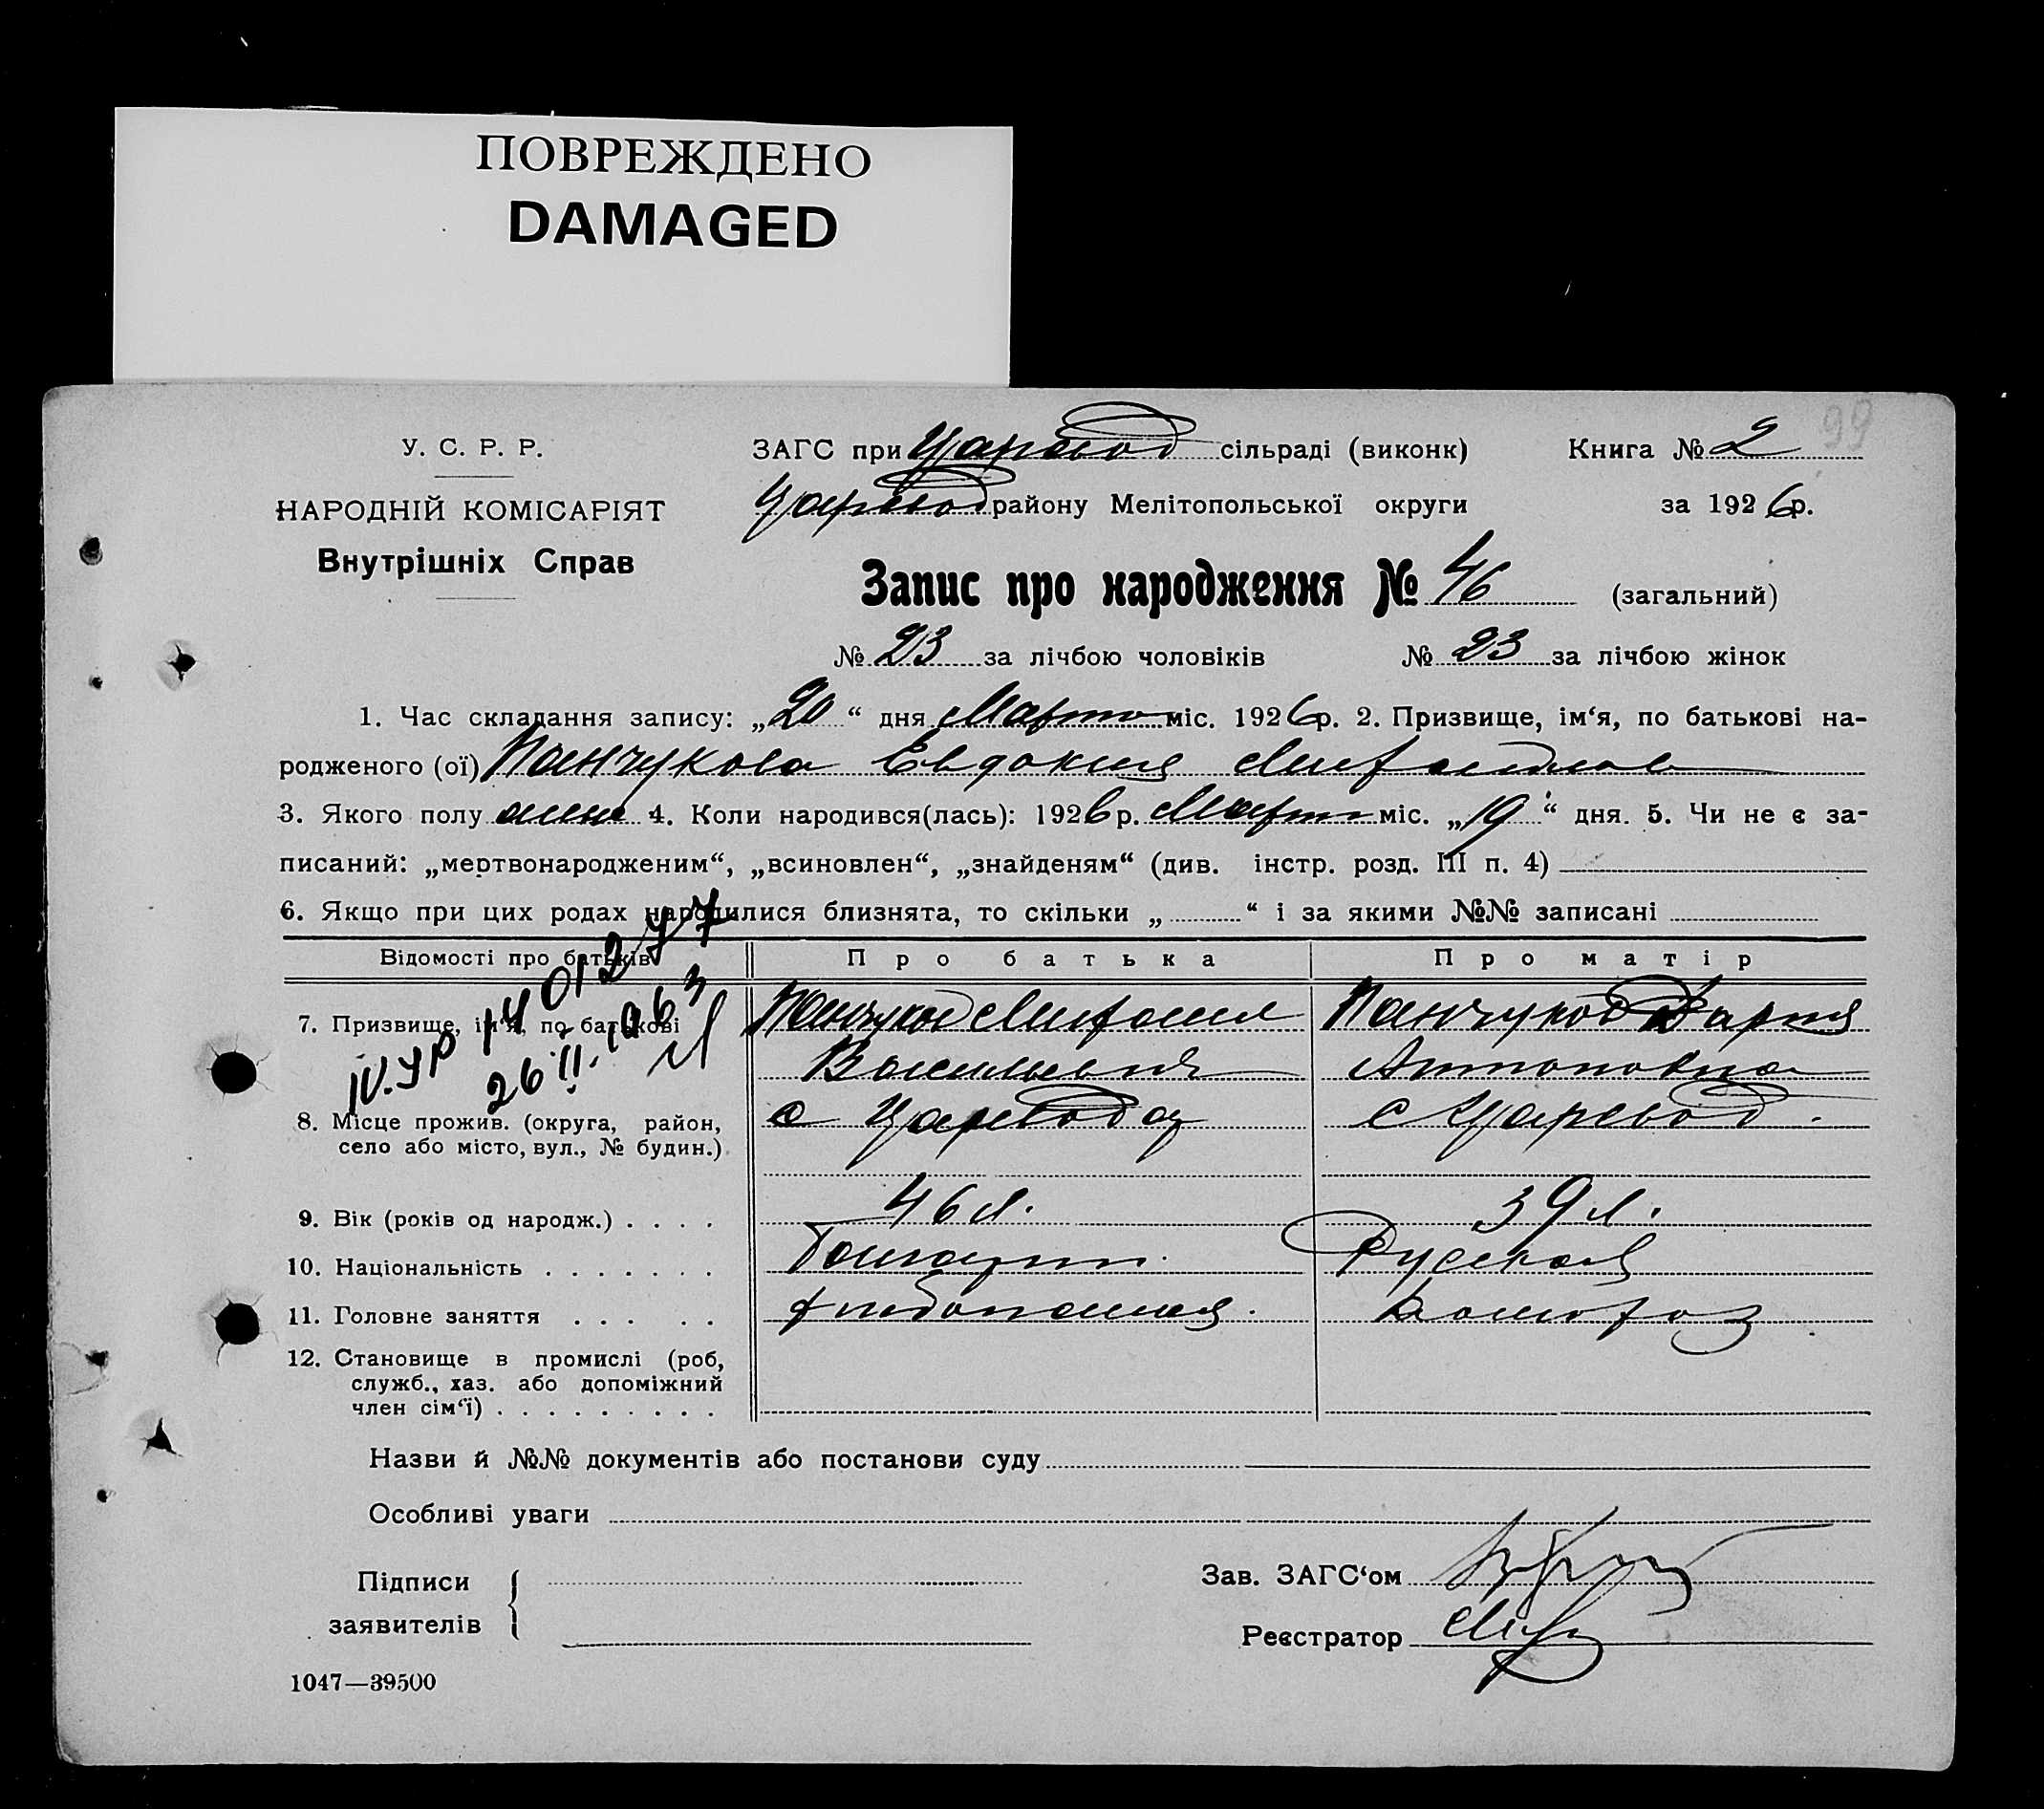 ПОВРЕЖДЕНО
DAMAGED
99
У. С. Р. Р.
НАРОДНІЙ КОМІСАРІЯТ
Внутрішніх Справ
ЗАГС при Царевод сільраді (виконк)
Книга № 2
Царевод району Мелітопольської округи
за 1926р.
Запис про народження № 46 (загальний)
№ 23 за лічбою чоловіків № 23 за лічбою жінок
1. Час складання запису: „20“ дня Марта міс. 1926р. 2. Призвище, ім‘я, по батькові на-
родженого (ої) Панчукова Евдокия
3. Якого полу 4. Коли народився(лась): 1926р. Марта міс. „19“ дня. 5. Чи не є за-
писаний: „мертвонародженим“, „всиновлен“, „знайденям“ (див. інстр. розд. III п. 4)
6. Якщо при цих родах народилися близнята, то скільки „ “ і за якими №№ записані
Відомості про батьків
Про батька
Про матір
IV.УР 14 01277
26 II. 1963
7. Призвище, ім‘я, по батькові
Панчуков
Васильевич
Панчуков Дария
Антоновна
8. Місце прожив. (округа, район,
село або місто, вул., № будин.)
с Царевод
с Царевод.
9. Вік (років од народж.) . . . .
46 л.
39 л.
10. Національність . . . . . . .
Руская
11. Головне заняття . . . . .
хлебопашец.
домохоз
12. Становище в промислі (роб,
служб., хаз. або допоміжний
член сім‘ї) . . . . . . . . .
Назви й №№ документів або постанови суду
Особливі уваги
Підписи
заявителів
Зав. ЗАГС‘ом
Реєстратор
1047—39500